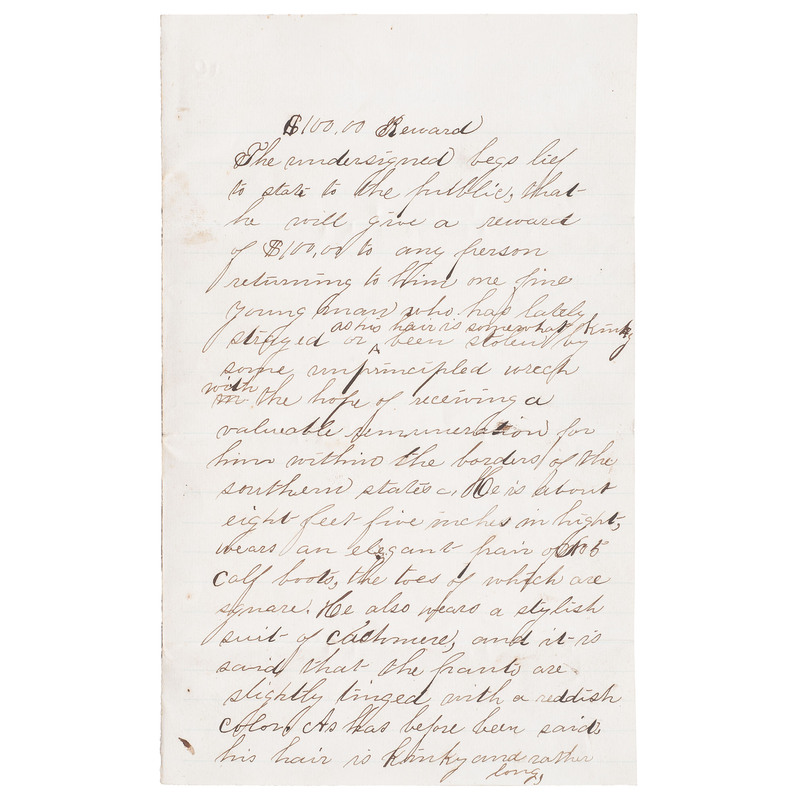 $100,00 Reward
The undersigned begs lief
to state to the public, that
he will give a reward
of $100,00 to any person
returning to him one fine
young man who has lately
as his hair is somewhat kinky
strayed or been stolen by
some unprincipled wrech
with
in the hope of receiving a
valueable remuneration for
him within the borders of the
southern states. He is about
eight feet five inches in hight,
wears an elegant pair of No 5
calf boots, the toes of which are
square. He also wears a stylish
suit of cashmere, and it is
said, that the pants are
slightly tinged with a reddish
color. As has before been said,
his hair is kinky and rather
long,